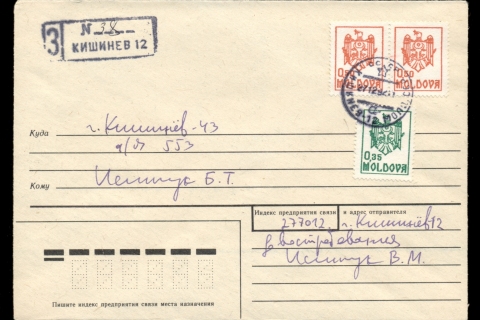 З N 38
КИШИНЕВ 12
0,50 0,50
MOLDOVA MOLDOVA
0,35
MOLDOVA
Куда г. Кишинёв-43
а/я 553
Кому Исипчук Б.Т.
Индекс предприятия связи и адрес отправителя
277012 г. Кишинёв 12
до востребования
Исипчук В.М.
Пишите индекс предприятия связи места назначения